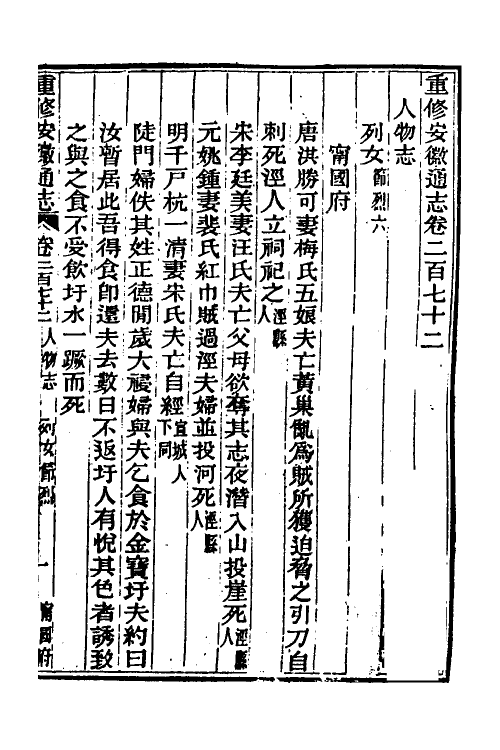 重修安徽通志卷二百七十二
人物志
列女節烈六
甯國府
唐洪勝可妻梅氏五娘夫亡黃巢亂爲賊所獲迫脅之引刀自
刺死涇人立祠祀之涇縣人
宋李廷美妻汪氏夫亡父母欲奪其志夜潛入山投崖死涇縣人
元姚鍾妻裴氏紅巾賊過涇夫婦並投河死涇縣人
明千戸杭一清妻朱氏夫亡自經宣城人下同
陡門婦佚其姓正德閒歲大祲婦與夫乞食於金寶圩夫約曰
汝暫居此吾得食卽還夫去數日不返圩人有悅其色者誘致
之與之食不受飮圩水一蹶而死
重修安徽通志 卷二百七十二 人物志 列女節烈 一 甯國府